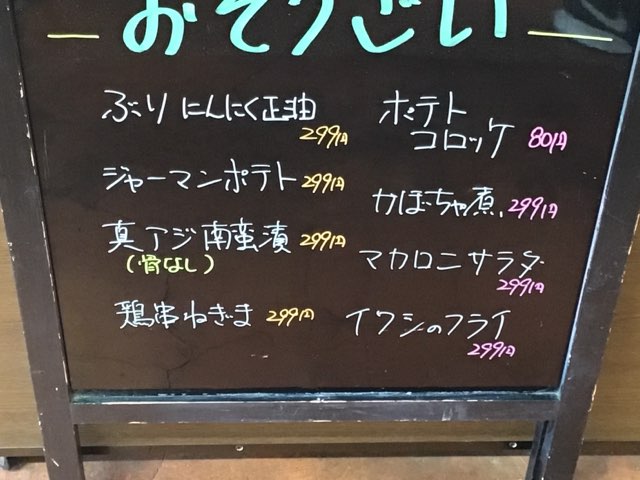 おそうざい
ぶり にんにく正油
299円
ジャーマンポテト 299円
真アジ南蛮漬 299円
(骨なし)
鶏串ねぎま 299円
ポテト
コロッケ 80円
かぼちゃ煮 299円
マカロニサラダ
299円
イワシのフライ
299円